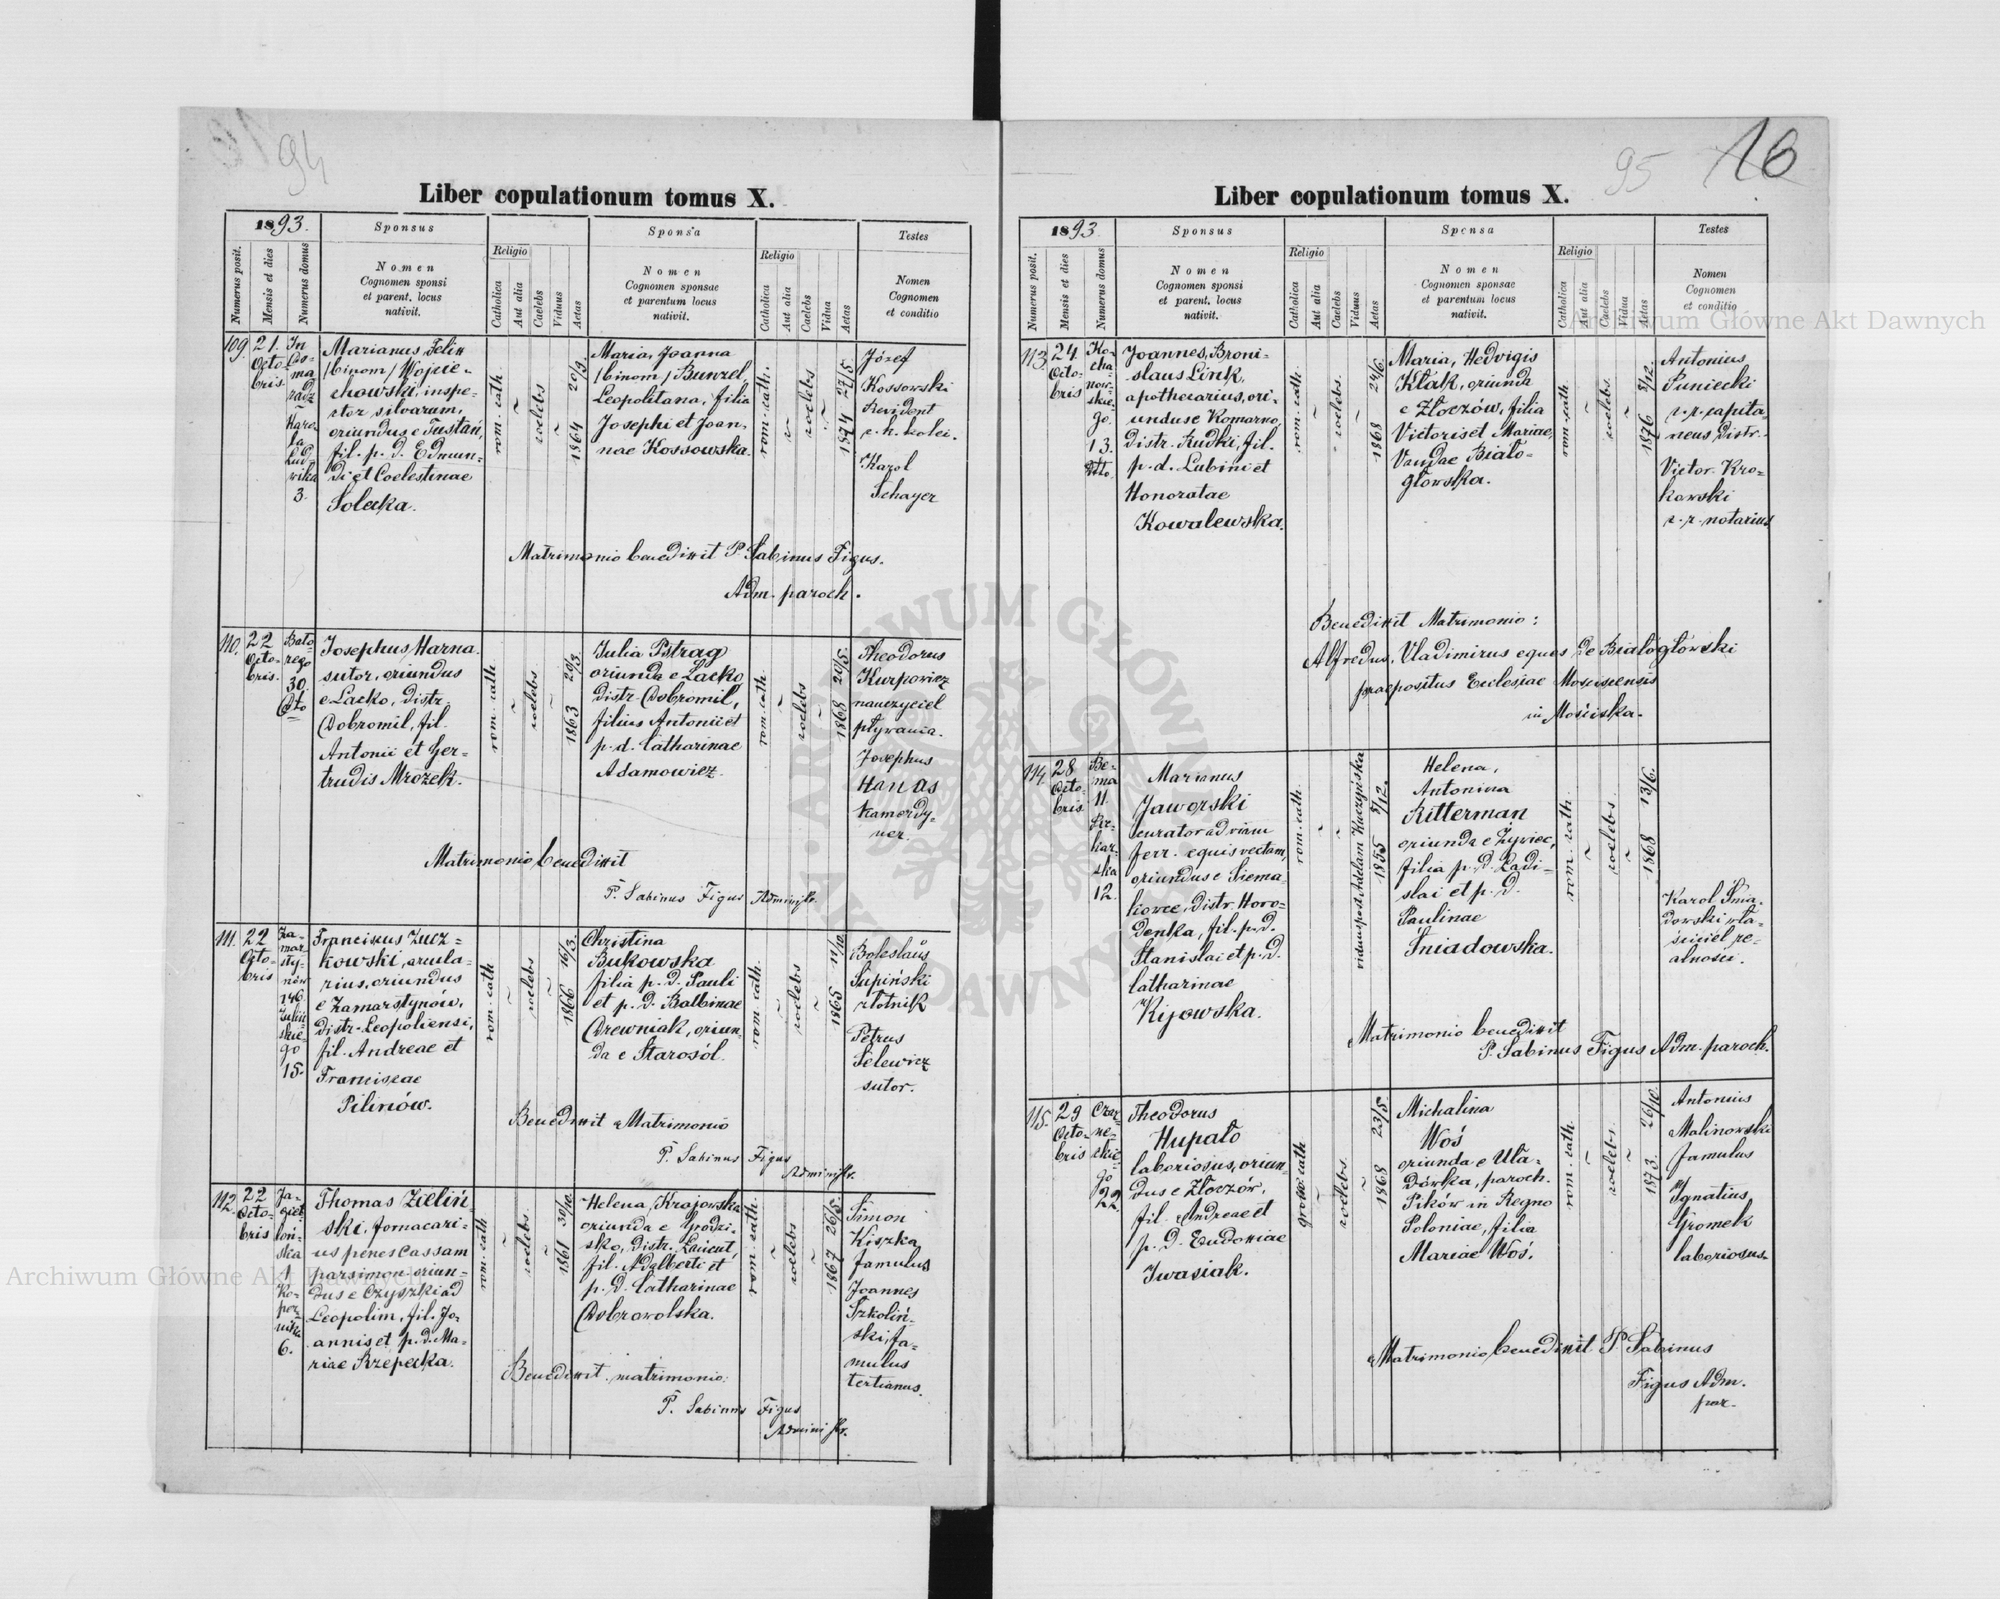 94
Liber copulationum tomus X.
1893.
Sponsus
Sponsa
Testes
Numerus posit.
Mensis et dies
Numerus domus
Nomen
Cognomen sponsi
et parent. locus
nativit.
Religio
Catholica
Aut alia
Caelebs
Viduus
Aetas
Nomen
Cognomen sponsae
et parentum locus
nativit.
Religio
Catholica
Aut alia
Caelebs
Vidua
Aetas
Nomen
Cognomen
et conditio
109.
21.
Octo-
bris
Karo-
la
Lud-
wika
3.
Marianus, Felix
/binom/ Wojcie-
chowski, inspe-
ctor silvarum,
oriundus e Tustań,
fil. p. d. Edmun-
di et Coelestinae
Solecka.
rom. cath.
coelebs
1864 20/3.
Maria, Joanna
/binom/ Bunzel,
Leopolitana, filia
Josephi et Joan-
nae Kossowska.
rom. cath.
coelebs
1874 27/5.
Józef
Kossowski
Revident
c. k. kolei.
Karol
Schayer
Matrimonio benedixit P. Sabinus Figus.
Adm. paroch.
110.
22
Octo-
bris.
Bato-
rego
30.
Josephus Harna.
sutor, oriundus
e Lacko, distr.
Dobromil, fil.
Antonii et Ger-
trudis Mrozek.
rom. cath
coelebs
1863 20/3.
Julia Pstrag
oriunda e Lacko
distr. Dobromil,
filius Antonii et
p. d. Catharinae
Adamowicz.
rom. cath.
coelebs
1868 20/5.
Theodorus
Kurpowicz
nauczyciel
pływania.
Josephus
Hanas
kamerdy-
ner.
Matrimonio benedixit
P. Sabinus Figus Administr.
111.
22
Octo-
bris
Za-
mar-
sty-
nów
146.
15.
Franciscus Zucz-
kowski, arcula-
rius, oriundus
e Zamarstynow,
distr. Leopoliensi,
fil. Andreae et
Franciscae
Pilinów.
rom. cath
coelebs
1866 16/3.
Christina
Bukowska
filia p. d. Pauli
et p. d. Balbinae
Drewniak, oriun-
da e Starosól.
rom. cath.
coelebs
1865 11/10.
Boleslaus
Supiński
złotnik
Petrus
Selewicz
sutor.
Benedixit Matrimonio
P. Sabinus Figus
Administr.
112.
22
Octo-
bris
Ja-
giel-
loń-
ska
1
Ko-
per-
nika
6.
Thomas Zieliń-
ski, fornacari-
us penes Cassam
parsimon. oriun-
dus e Czyszki ad
Leopolim, fil. Jo-
annis et p. d. Ma-
riae Rzepecka.
rom. cath
coelebs
1861 30/10.
Helena Krajowska
oriunda e Grodzi-
sko, distr. Łańcut,
fil. Adalberti et
p. d. Catharinae
Dobrowolska.
rom. cath.
coelebs
1867 26/5.
Simon
Kiszka,
famulus
Joannes
Szkoliń-
ski, fa-
mulus
tertianus.
Benedixit matrimonio:
P. Sabinus Figus
Administr.
95
16
Liber copulationum tomus X.
1893.
Sponsus
Sponsa
Testes
Numerus posit.
Mensis et dies
Numerus domus
Nomen
Cognomen sponsi
et parent. locus
nativit.
Religio
Catholica
Aut alia
Caelebs
Viduus
Aetas
Nomen
Cognomen sponsae
et parentum locus
nativit.
Religio
Catholica
Aut alia
Caelebs
Vidua
Aetas
Nomen
Cognomen
et conditio
113.
24.
Octo-
bris
Ko-
cha-
now-
skie-
go.
13.
Joannes, Broni-
slaus Link,
apothecarius, ori-
undus e Komarno,
distr. Rudki, fil.
p. d. Lubini et
Honoratae
Kowalewska.
rom. cath.
coelebs.
1868 24/6.
Maria, Hedvigis
Kłak, oriunda
e Złoczów, filia
Victoris et Mariae,
Vandae Biało-
głowska.
rom. cath
coelebs.
1876 8/12.
Antonius
Suniecki
c. r. capita-
neus distr.
Victor Kro-
kowski
c. r. notarius
Benedixit Matrimonio:
Alfredus, Vladimirus eques de Białogłowski
praepositus Ecclesiae Moscisensis
in Mościska.
114.
28
Octo-
bris
Be-
ma
11.
Pie-
kar-
ska
12.
Marianus
Jaworski
curator ad viam
ferr. equis vectam,
oriundus e Siema-
kowce, distr. Horo-
denka, fil. p. d.
Stanislai et p. d.
Catharinae
Kijowska.
rom. cath.
viduus post Adelam Kuczyńska
1855 8/12.
Helena,
Antonina
Ritterman
oriunda e Żywiec,
filia p. d. Ladi-
slai et p. d.
Paulinae
Śniadowska.
rom. cath.
coelebs.
1868 13/6.
Karol Śnia-
dowski wła-
ściciel re-
alności.
Matrimonio benedixit
P. Sabinus Figus Adm. paroch.
115.
29
Octo-
bris
Czar-
ne-
ckie-
go
22.
Theodorus
Hupało
laboriosus, oriun-
dus e Złoczów,
fil. Andreae et
p. d. Eudoxiae
Iwasiak.
graeco. cath
coelebs.
1868 23/5.
Michalina
Woś
oriunda e Uła-
dówka, paroch.
Pików in Regno
Poloniae, filia
Mariae Woś.
rom. cath.
coelebs.
1873. 26/10.
Antonius
Malinowski
famulus
Ignatius
Gromek
laboriosus.
Matrimonio benedixit P. Sabinus
Figus Adm.
par.
Archiwum Główne Akt Dawnych
Archiwum Główne Akt Dawnych
ARCHIWUM GŁÓWNE AKT DAWNYCH